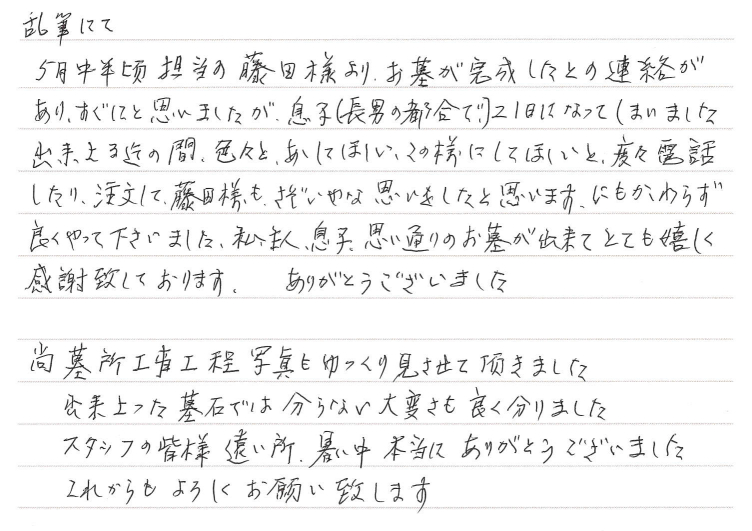 乱筆にて
5月中半頃 担当の 藤田様より、お墓が完成したとの連絡が
あり、すぐにと思いましたが、息子(長男の都合で)21日になってしまいました
出来上る迄の間、色々と、あしてほしい、この様にしてほしいと、度々電話
したり、注文して、藤田様も、さぞいやな思いをしたと思います、にもかかわらず
良くやって下さいました、私、主人、息子、思い通りのお墓が出来てとても嬉しく
感謝致しております。 ありがとうございました
尚墓所工事工程写真もゆっくり見させて頂きました
出来上った墓石では分らない大変さも良く分りました
スタッフの皆様 遠い所、暑い中 本当に ありがとうございました
これからも よろしく お願い致します